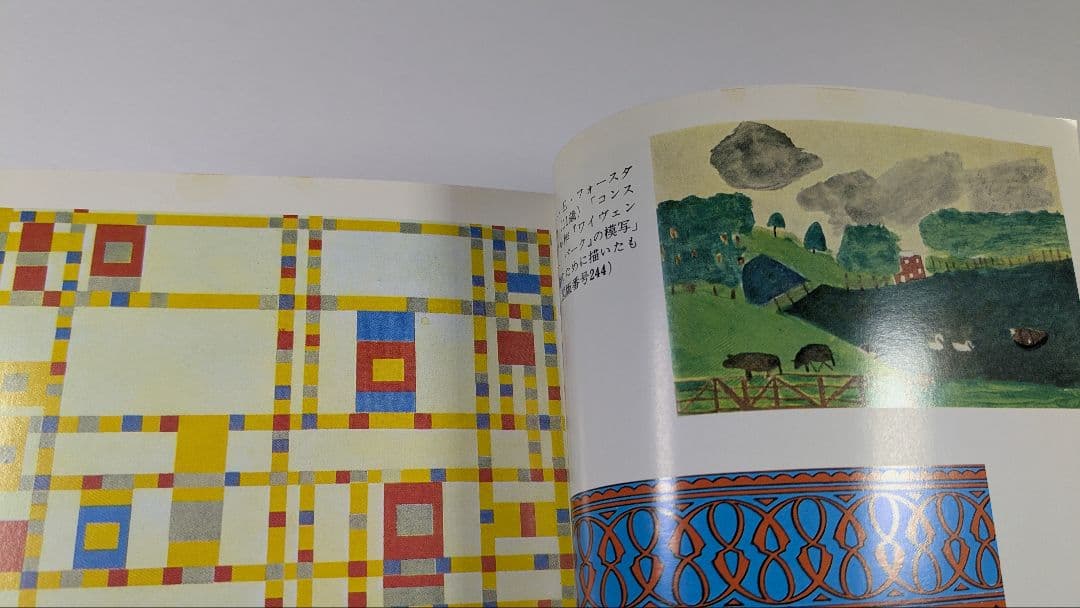 E・フォースタ
1歳)「コンス
『ワイヴェン
パーク』の模写」
ために描いたも
版番号244)